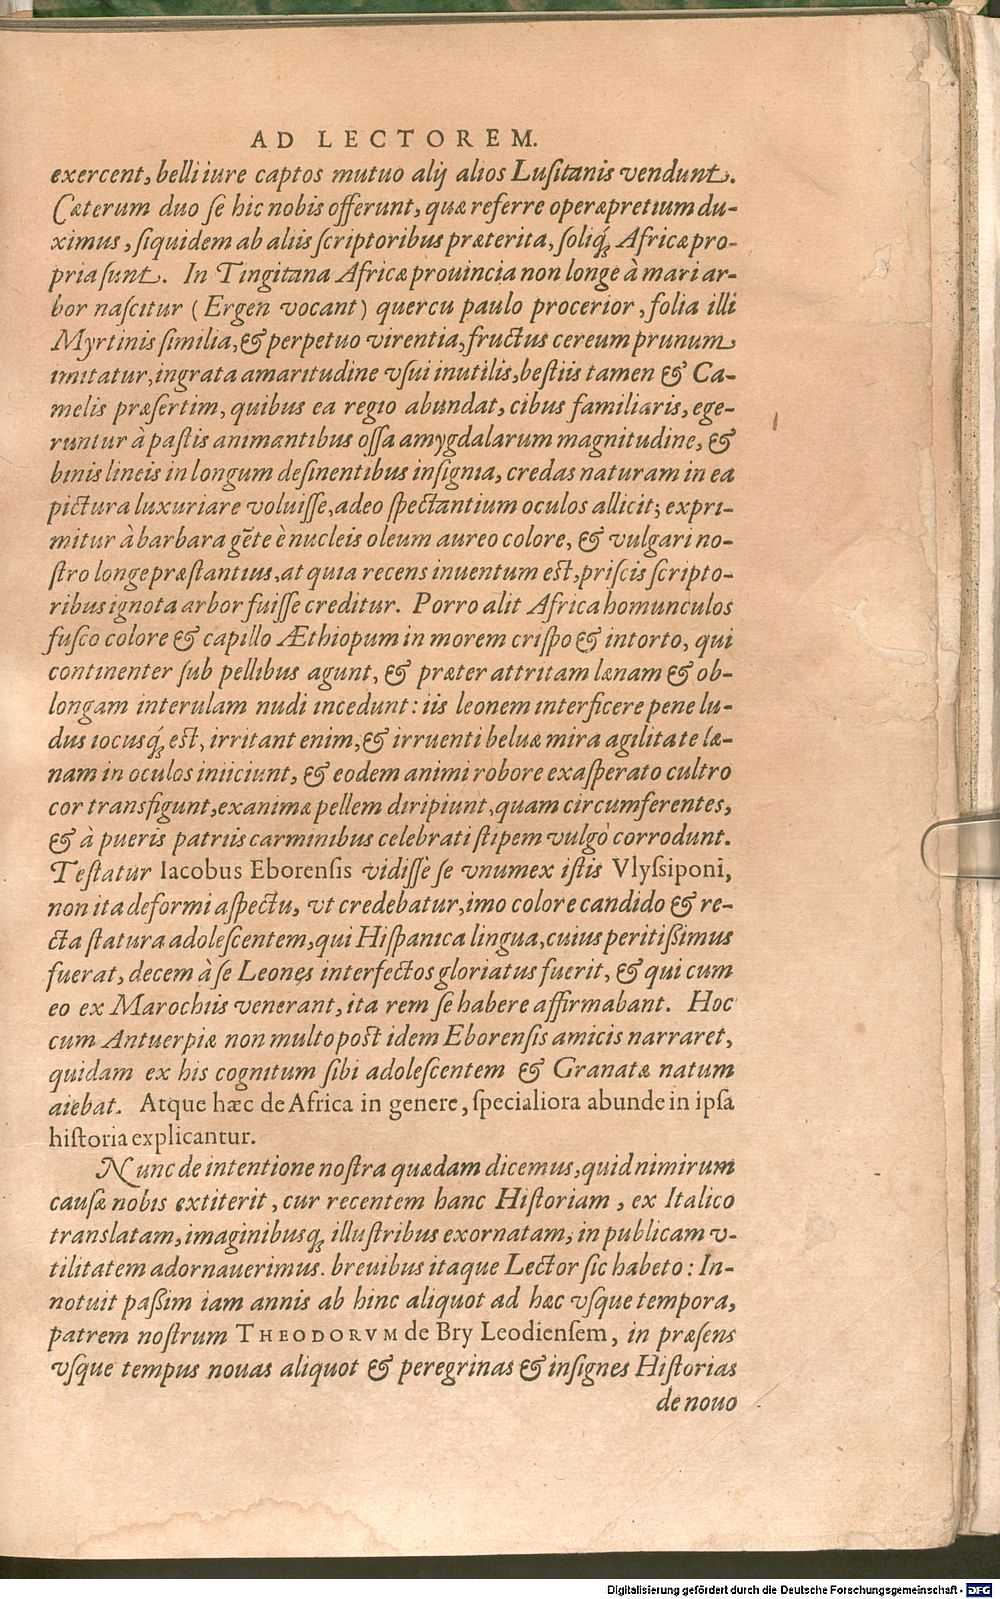 AD LECTOREM.
exercent, belli iure captos mutuo alij alios Luſitanis vendunt.
Cæterum duo ſe hic nobis offerunt, quæ referre operæpretium du-
ximus, ſiquidem ab aliis ſcriptoribus præterita, ſoliq́; Africæ pro-
pria ſunt. In Tingitana Africæ prouincia non longe à mari ar-
bor naſcitur (Ergen vocant) quercu paulo procerior, folia illi
Myrtinis ſimilia, & perpetuo virentia, fructus cereum prunum
imitatur, ingrata amaritudine vſui inutilis, beſtiis tamen & Ca-
melis præſertim, quibus ea regio abundat, cibus familiaris, ege-
runtur à paſtis animantibus oſſa amygdalarum magnitudine, &
binis lineis in longum deſinentibus inſignia, credas naturam in ea
pictura luxuriare voluiſſe, adeo ſpectantium oculos allicit; expri-
mitur à barbara gẽte è nucleis oleum aureo colore, & vulgari no-
ſtro longe præſtantius, at quia recens inuentum eſt, priſcis ſcripto-
ribus ignota arbor fuiſſe creditur. Porro alit Africa homunculos
fuſco colore & capillo Æthiopum in morem criſpo & intorto, qui
continenter ſub pellibus agunt, & præter attritam lænam & ob-
longam interulam nudi incedunt: iis leonem interficere pene lu-
dus iocusq́; eſt, irritant enim, & irruenti beluæ mira agilitate læ-
nam in oculos iniiciunt, & eodem animi robore exaſperato cultro
cor transfigunt, exanimæ pellem diripiunt, quam circumferentes,
& à pueris patriis carminibus celebrati ſtipem vulgò corrodunt.
Teſtatur Iacobus Eborenſis vidiſſe ſe vnum ex iſtis Vlyſsiponi,
non ita deformi aſpectu, vt credebatur, imo colore candido & re-
cta ſtatura adoleſcentem, qui Hiſpanica lingua, cuius peritißimus
fuerat, decem à ſe Leones interfectos gloriatus fuerit, & qui cum
eo ex Marochiis venerant, ita rem ſe habere affirmabant. Hoc
cum Antuerpiæ non multo poſt idem Eborenſis amicis narraret,
quidam ex his cognitum ſibi adoleſcentem & Granatæ natum
aiebat. Atque hæc de Africa in genere, ſpecialiora abunde in ipſa
hiſtoria explicantur.
Nunc de intentione noſtra quædam dicemus, quid nimirum
cauſæ nobis extiterit, cur recentem hanc Hiſtoriam, ex Italico
translatam, imaginibusq; illuſtribus exornatam, in publicam v-
tilitatem adornauerimus. breuibus itaque Lector ſic habeto: In-
notuit paßim iam annis ab hinc aliquot ad hæc vſque tempora,
patrem noſtrum THEODORVM de Bry Leodienſem, in præſens
vſque tempus nouas aliquot & peregrinas & inſignes Hiſtorias
de nouo
Digitalisierung gefördert durch die Deutsche Forschungsgemeinschaft - DFG